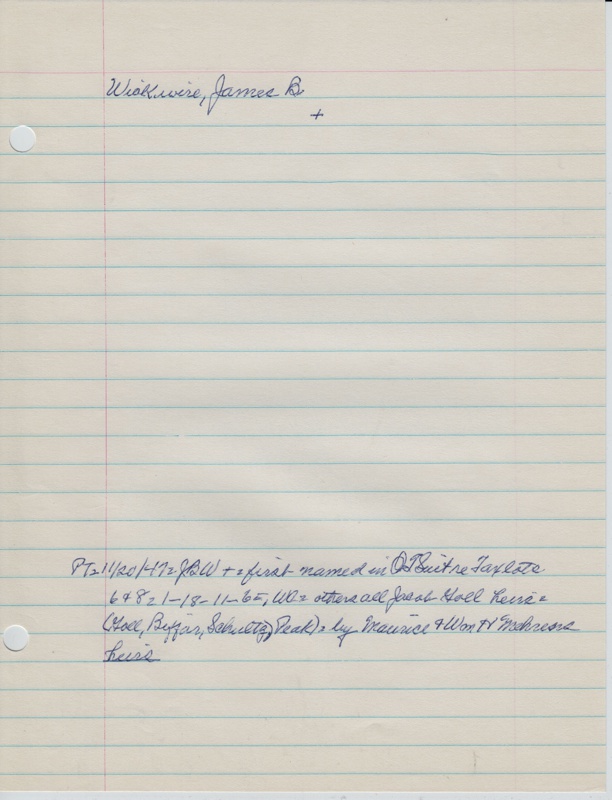 Wickwire, James B.
+
PT=11/20/47=JBW += first named in QTSuit re Taxlots
6+8=1-18-11-6E, WD= others all Jacob Goll heirs=
(Goll, Biffar, Schultz, Peak)= by Maurice + Wm H
heirs